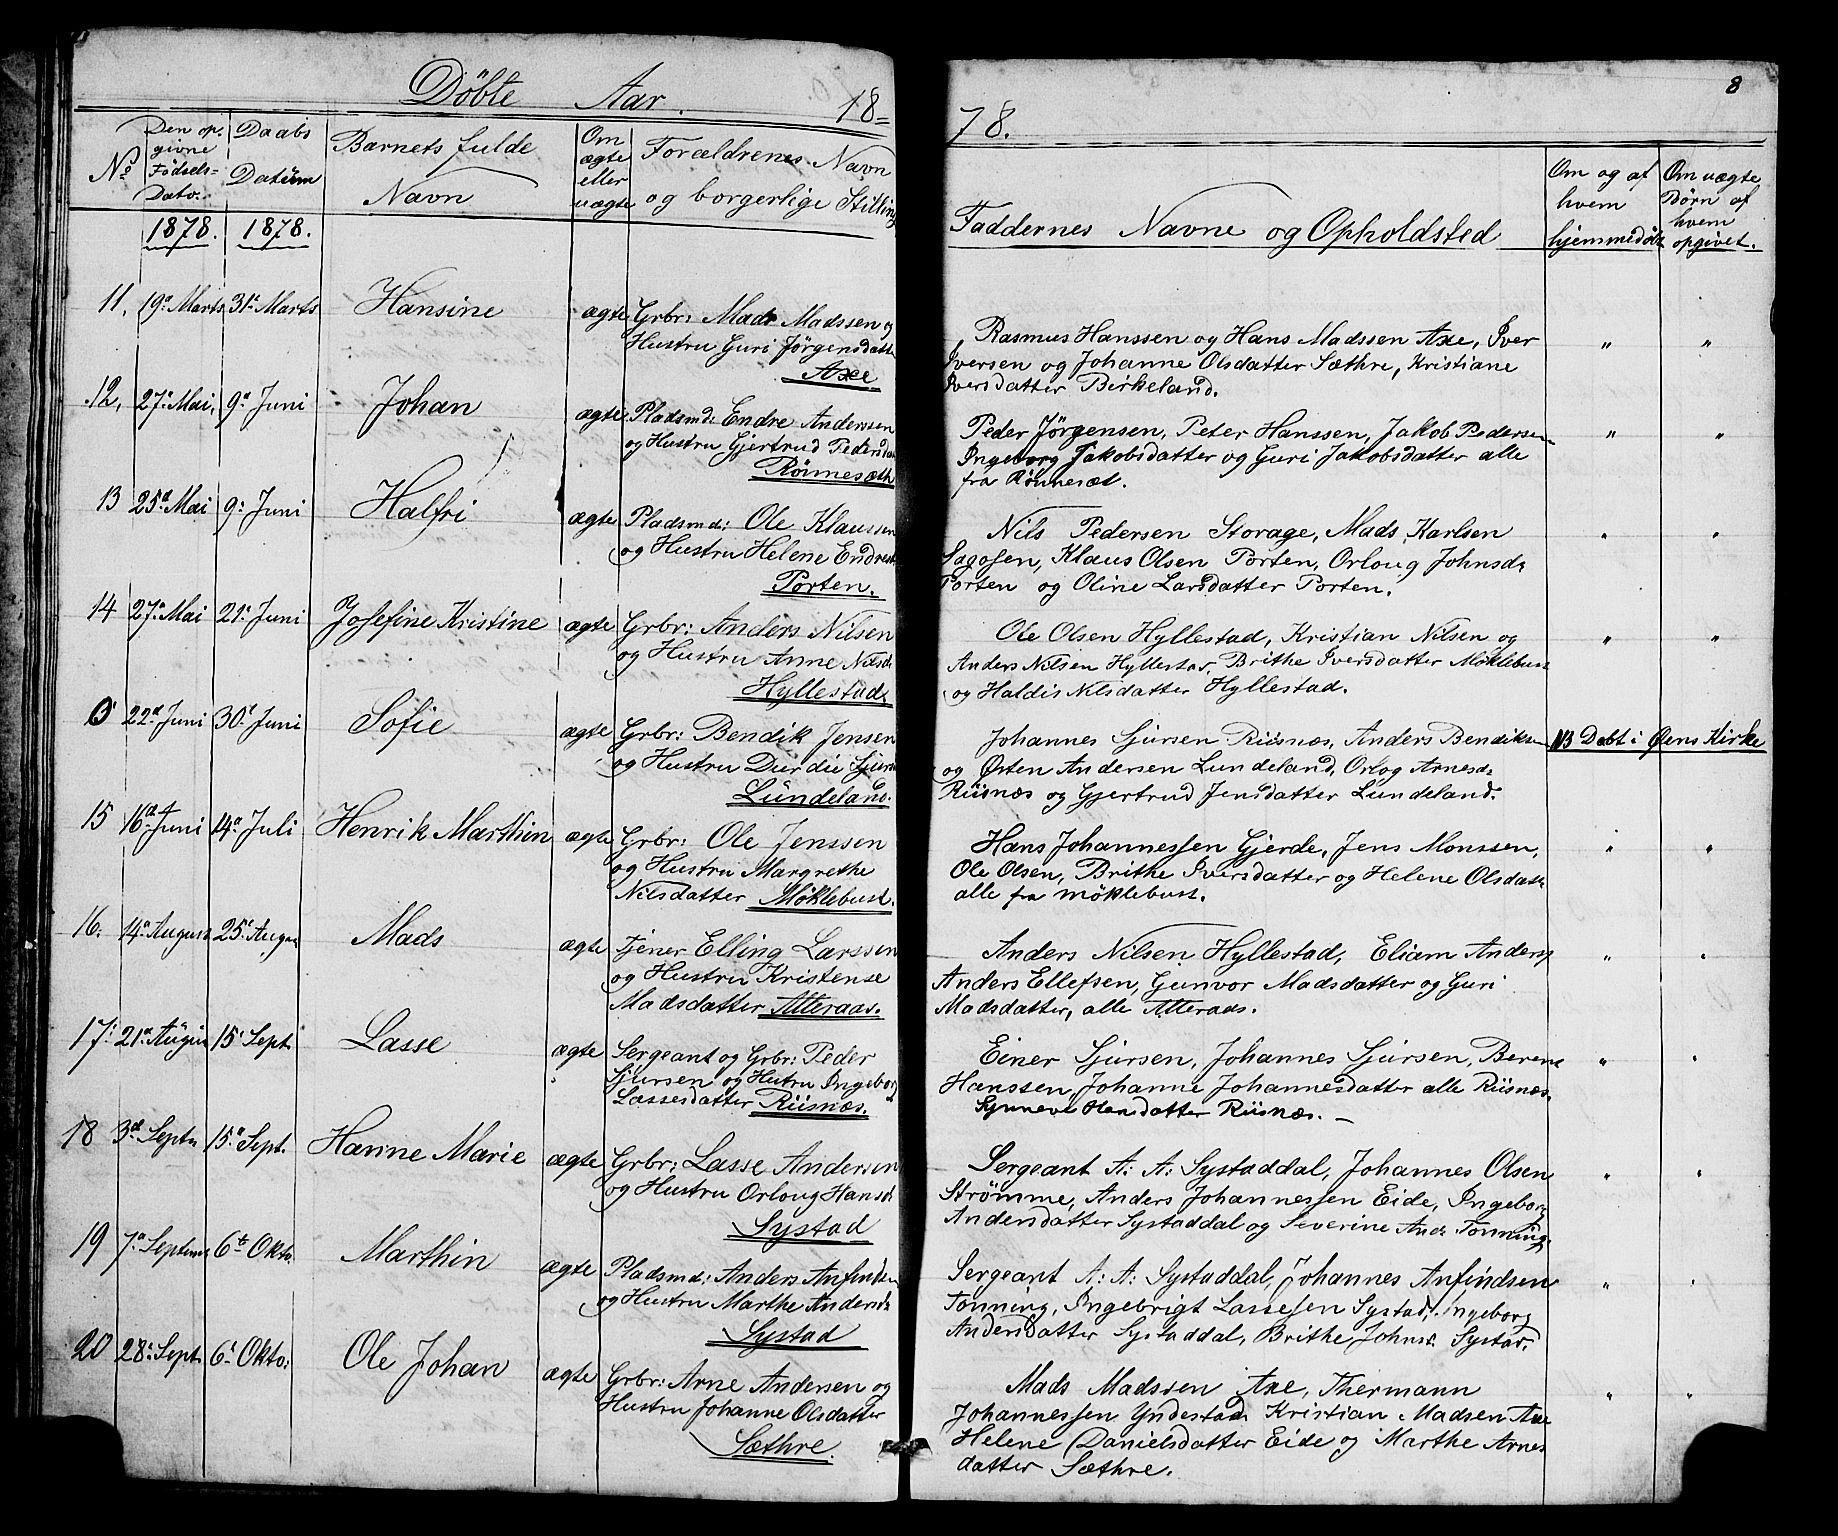 Döbte Aar. 18=
No
Den op.
givne
Födsels=
Dato.
Daabs
Datum
Barnets fulde
Navn
Om
ægte
eller
uægte
Forældrenes Navn
og borgerlige Stilling
1878. 1878.
11. 19de Marts 31te Marts Hansine ægte Grbr: Mads Madssen og
Hustru Guri Jörgensdatt
Axe
12. 27. Mai, 9de Juni Johan ægte Pladsmd: Endre Anderssen
og Hustru Gjertrud Pedersdat
Rönnesæth
13 25de Mai 9. Juni Halfri ægte Pladsmd: Ole Klaussen
og Hustru Helene Endrest
Porten.
14 27. Mai 21. Juni Josefine Kristine ægte Grbr: Anders Nilsen
og Hustru Anne Nilsd.
Hyllestad.
0 22de Juni 30. Juni Sofie ægte Grbr: Bendik Jensen
og Hustru Durdie Sjurs
Lundeland.
15 16de Juni 14de Juli Henrik Marthin ægte Grbr: Ole Jenssen
og Hustru Margrethe
Nilsdatter Möklebust.
16. 14de August 25. August Mads ægte Tjener Elling Larssen
og Hustru Kristense
Madsdatter Atteraas.
17. 21de August 15. Sept. Lasse ægte Sergeant og Grbr: Peder
Sjursen og Hutru Ingeborg
Lassesdatter Riisnæs.
18 3de Septr 15. Sept. Hanne Marie ægte Grbr: Lasse Andersen
og Hustru Orloug Hansd.
Systad
19 7de Septemb 6te Okto. Marthin ægte Pladsmd: Anders Anfindsen
og Hustru Marthe Andersd.
Systad
20 28. Sept. 6. Okto: Ole Johan ægte Grbr: Arne Andersen og
Hustru Johanne Olsdatter
Sæthre.
8
78.
Faddernes Navne og Opholdsted
Om og af
hvem
hjemmedöbt
Om uægte
Börn af
hvem
opgivet.
Rasmus Hanssen og Hans Madssen Axe, Iver " "
Iversen og Johanne Olsdatter Sæthre, Kristiane
Iversdatter Birkeland.
Peder Jörgensen, Peter Hanssen, Jakob Pedersen " "
Ingeborg Jakobsdatter og Guri Jakobsdatter alle
fra Rönnesæt.
Nils Pedersen Storage, Mads Karlsen " "
Sagosen, Klaus Olsen Porten, Orloug Johnsd.
Porten og Oline Larsdatter Porten.
Ole Olsen Hyllestad, Kristian Nilsen og " "
Anders Nilsen Hyllestad, Brithe Iversdatter Möklebust
og Haldis Nilsdatter Hyllestad.
Johannes Sjursen Riisnæs, Anders Bendiksen NB Döbt i Öens Kirke
og Östen Andersen Lundeland, Orlog Arnesd.
Riisnæs og Gjertrud Jensdatter Lundeland.
Hans Johannessen Gjerde, Jens Monssen, " "
Ole Olsen, Brithe Iversdatter og Helene Olsdatt
alle fra Möklebust.
Anders Nilsen Hyllestad, Eliam Anders " "
Anders Ellefsen, Gunvor Madsdatter og Guri
Madsdatter, alle Atteraas.
Einer Sjursen, Johannes Sjursen, Berent " "
Hanssen, Johanne Johannesdatter alle Riisnæs.
Synneve Hansdatter Riisnæs. —
Sergeant A: A: Systaddal, Johannes Olsen " "
Strömme, Anders Johannessen Eide, Ingeborg
Andersdatter Systaddal og Severine And: Tonning.
Sergeant A: A: Systaddal, Johannes Anfindsen " "
Tonning, Ingebrigt Lassesen Systad, Ingeborg
Andersdatter Systaddal, Brithe Johnsd. Systad.
Mads Madssen Axe, Thermann " "
Johannessen Yndestad Kristian Madsen Axe
Helene Danielsdatter Eide og Marthe Arnes
datter Sæthre.